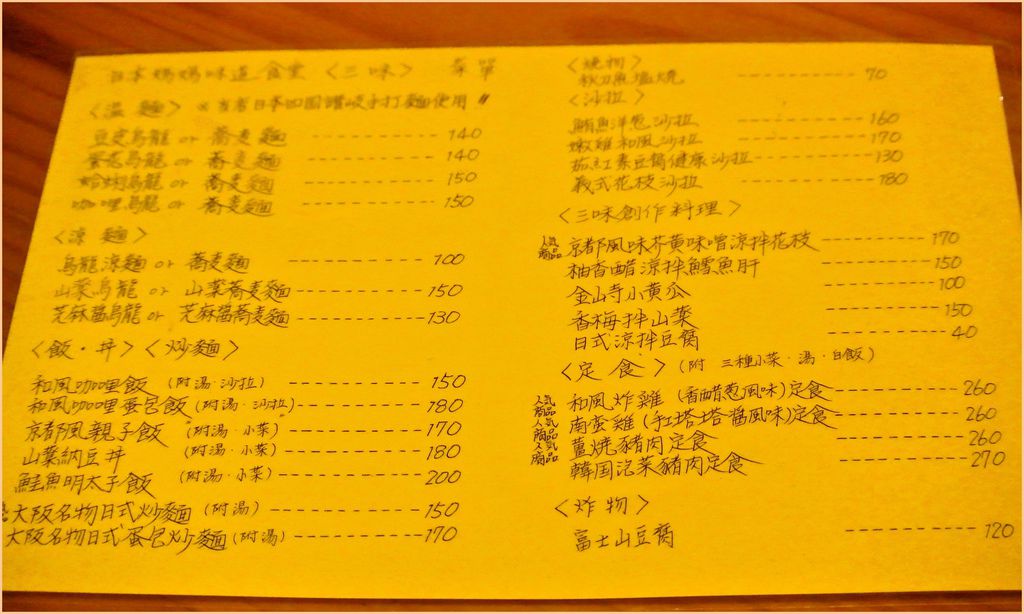 日本媽媽味道食堂 〈三味〉 菜單
〈溫麵〉 ※ 日本四國讚岐手打麵使用〃
豆皮烏龍 or 蕎麦麵 ------------ 140
烏龍 or 蕎麦麵 ------------ 140
蛤蜊烏龍 or 蕎麦麵 ------------ 150
咖哩烏龍 or 蕎麦麵 ------------ 150
〈涼麵〉
烏龍涼麵 or 蕎麦麵 ------------ 100
山菜烏龍 or 山菜蕎麦麵 ------------ 150
芝麻醬烏龍 or 芝麻醬蕎麦麵 ------------ 130
〈飯・丼〉〈炒麵〉
和風咖哩飯 (附湯・沙拉) ------------ 150
和風咖哩蛋包飯 (附湯・沙拉) ------------ 180
京都風親子飯 (附湯・小菜) ------------ 170
山葉納豆丼 (附湯・小菜) ------------ 180
鮭魚明太子飯 (附湯・小菜) ------------ 200
大阪名物日式炒麵 (附湯) ------------ 150
大阪名物日式蛋包炒麵 (附湯) ------------ 170
〈燒物〉
秋刀魚塩燒 ------------ 70
〈沙拉〉
鮪魚洋葱沙拉 ------------ 160
嫩雞和風沙拉 ------------ 170
茄紅素豆腐健康沙拉 ------------ 130
義式花枝沙拉 ------------ 180
〈三味創作料理〉
人気商品 京都風味芥黄味噌涼拌花枝 ------------ 170
柚香醋涼拌鱈魚肝 ------------ 150
金山寺小黄瓜 ------------ 100
香梅拌山葉 ------------ 150
日式涼拌豆腐 ------------ 40
〈定食〉(附 三種小菜・湯・白飯)
人気商品 和風炸雞 (香醋葱風味)定食 ------------ 260
人気商品 南蛮雞 (手工塔塔醬風味)定食 ------------ 260
人気商品 薑燒豬肉定食 ------------ 260
韓国泡菜豬肉定食 ------------ 270
〈炸物〉
富士山豆腐 ------------ 120